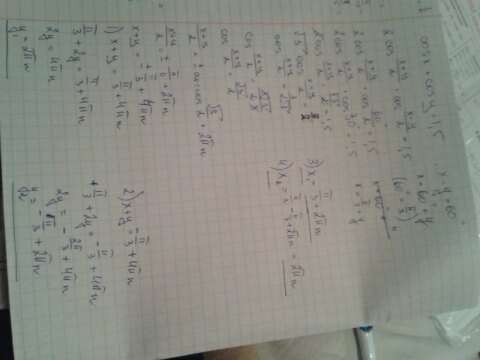 cosx + cosy = 1,5
x - y = 60°
2 cos x+y/2 · cos x-y/2 = 1,5
x = 60 + y
2 cos x+y/2 · cos 60/2 = 1,5
(60° = π/3)
2 cos x+y/2 · cos 30° = 1,5
x = π/3 + y
2 cos x+y/2 · √3/2 = 1,5
√3 cos x+y/2 = 3/2
cos x+y/2 = 3/2√3
cos x+y/2 = √3/2
x+y/2 = ± arccos √3/2 + 2πn
x+y/2 = ± π/6 + 2πn
x+y = ± π/3 + 4πn
1) x+y = π/3 + 4πn
π/3 + 2y = π/3 + 4πn
2y = 4πn
y₁ = 2πn
2) x+y = -π/3 + 4πn
π/3 + 2y = -π/3 + 4πn
2y = -2π/3 + 4πn
y₂ = -π/3 + 2πn
3) x₁ = π/3 + 2πn
4) x₂ = π/3 - π/3 + 2πn = 2πn